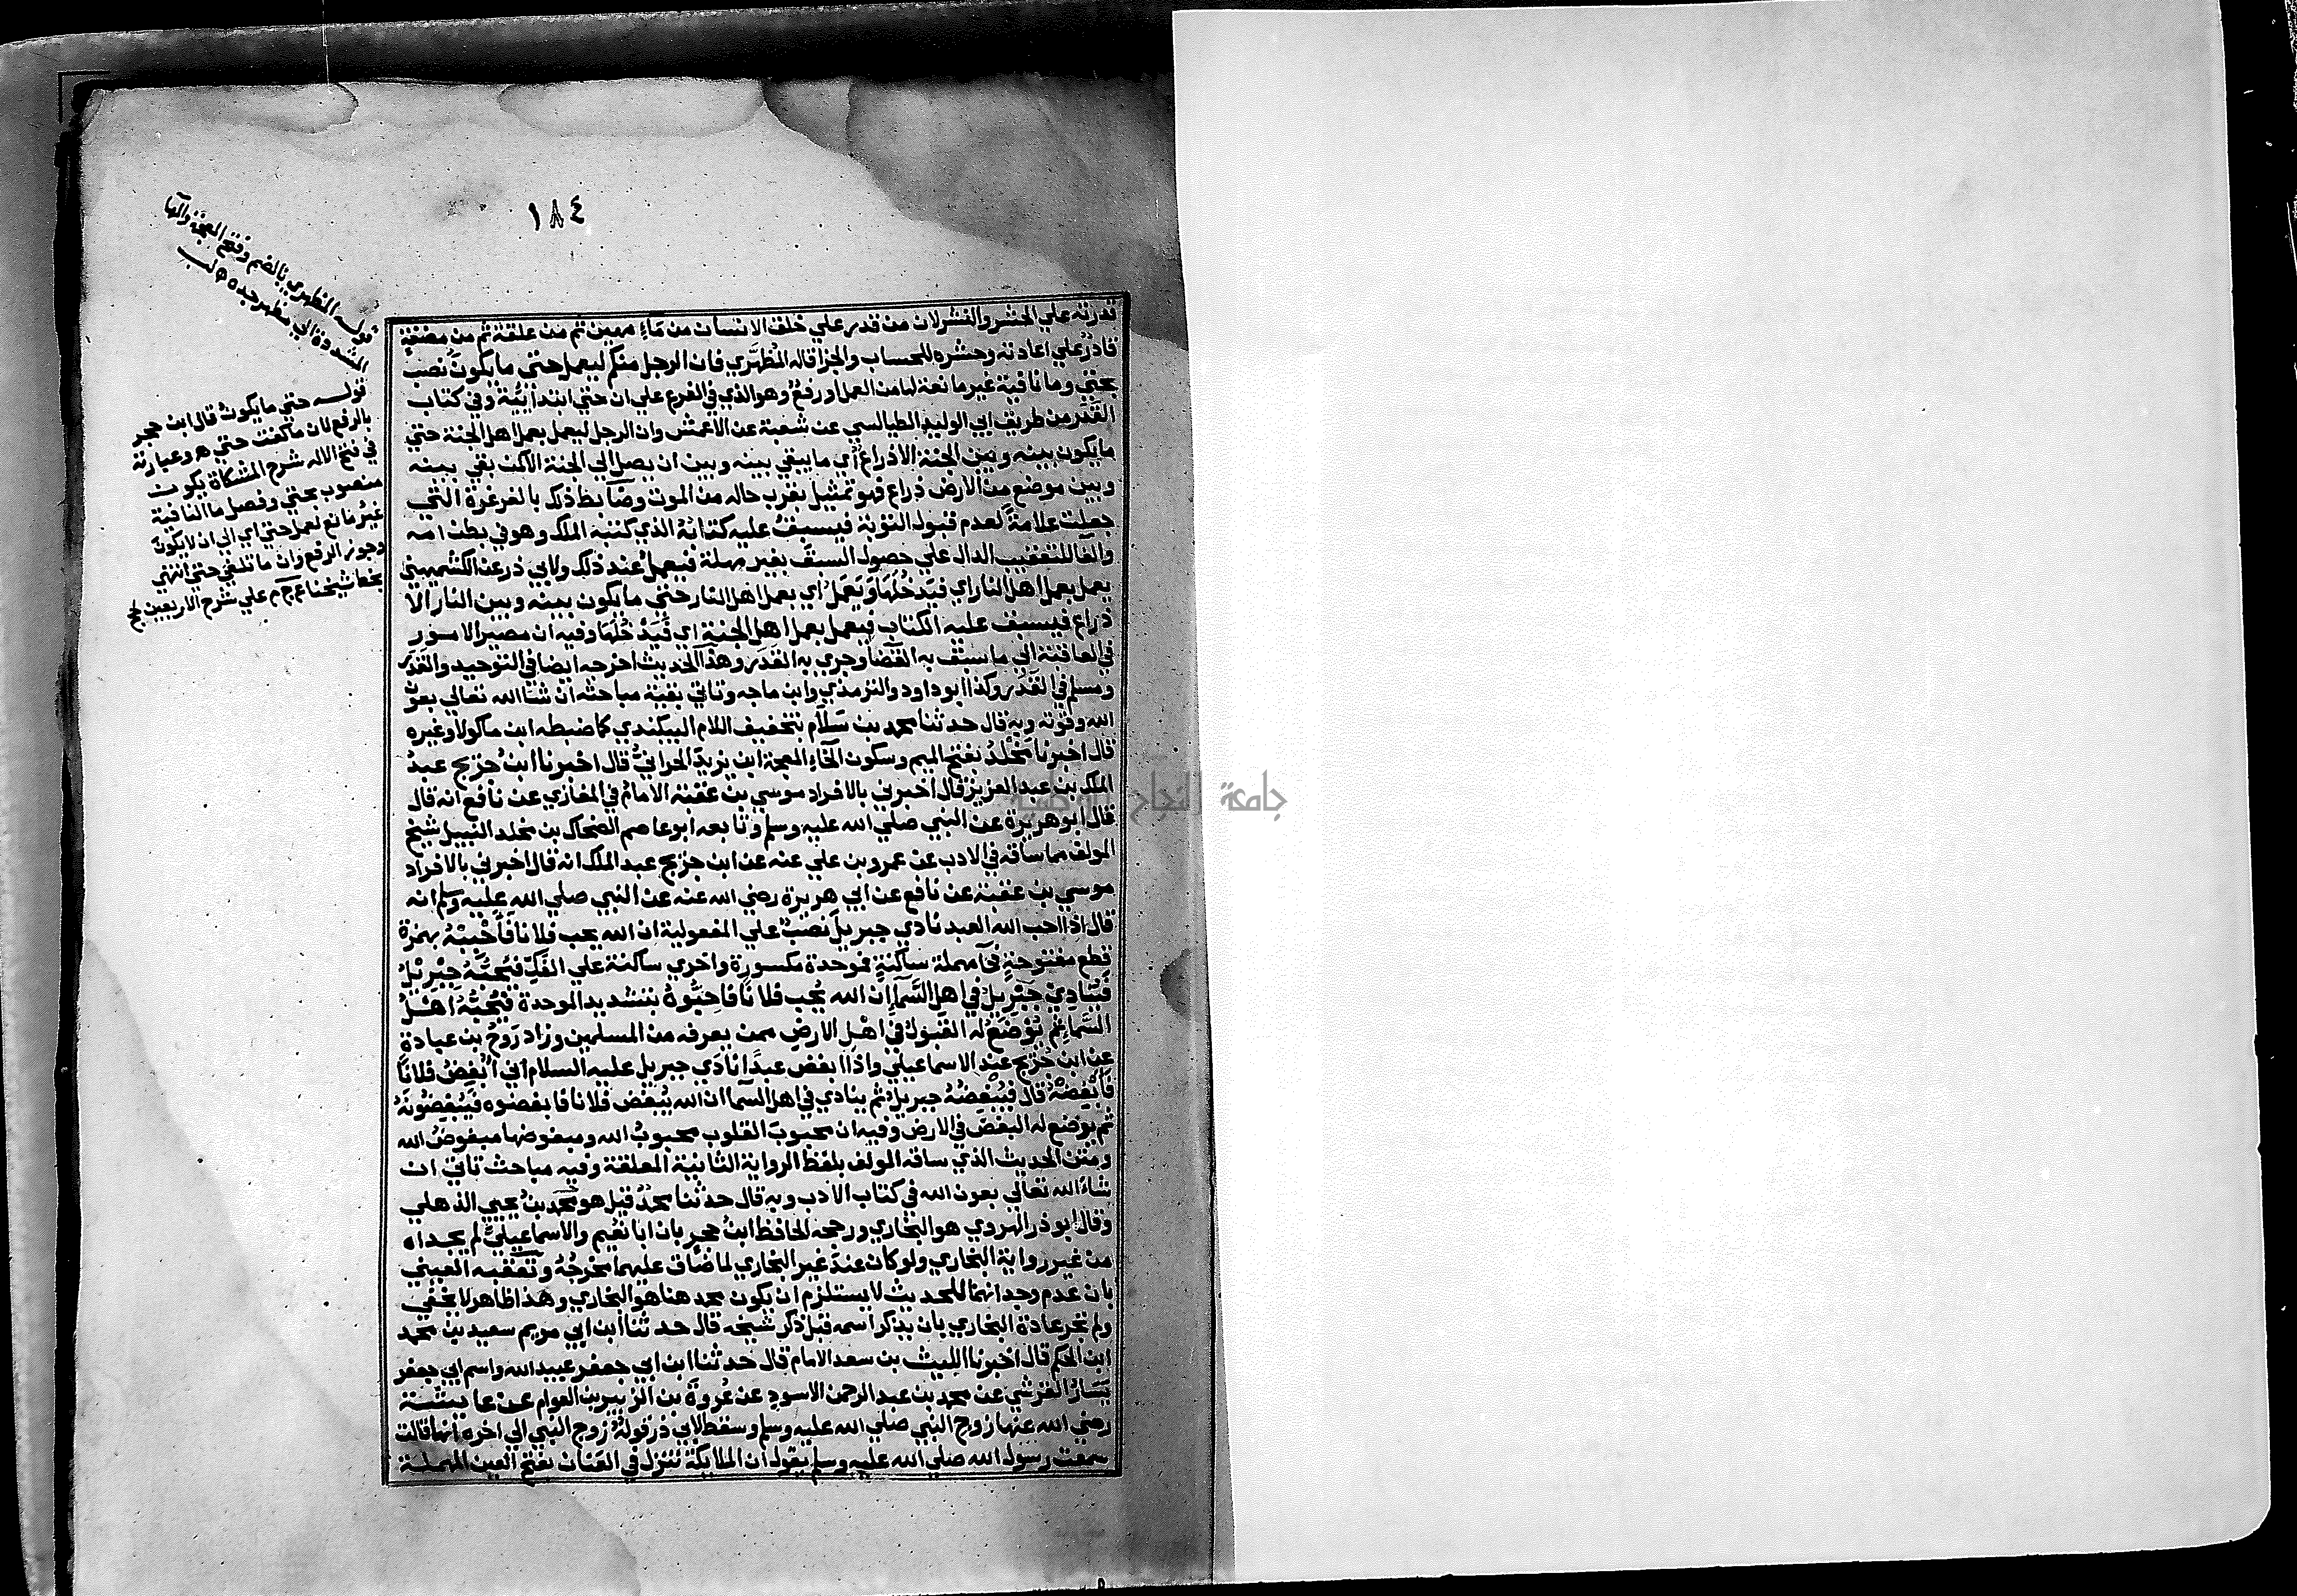 ١٨٤
قوله المظهري بالضم وفتح المعجمة والهاء
المشددة الي مظهر جده ه لب
قوله حتي ما يكون قال ابن حجر
بالرفع لان ما كفت حتي ه وعبارته
في فتح الاله شرح المشكاة يكون
منصوب بحتي وفصل ما النافية
غير مانع لعمل حتي اي الي ان لا يكون
وجوز الرفع وان ما تلغي حتي انتهي
بخط شيخنا ع ج م علي شرح الاربعين لحج
قدرته علي الحشر والنشر لان من قدر علي خلق الانسان من ماء مهين ثم من علقة ثم من مضغة
قادر علي اعادته وحشره للحساب والجزا قاله المظهري فان الرجل منكم ليعمل حتي ما يكون نصب
بحتي وما نافية غير مانعة لها من العمل او رفع وهو الذي في الفرع علي ان حتي ابتدائية وفي كتاب
القدر من طريق ابي الوليد الطيالسي عن شعبة عن الاعمش وان الرجل ليعمل بعمل اهل الجنة حتي
ما يكون بينه وبين الجنة الا ذراع اي ما يبقي بينه وبين ان يصل الي الجنة الا كمن بقي بينه
وبين موضع من الارض ذراع فهو تمثيل بقرب حاله من الموت وضابط ذلك بالغرغرة التي
جعلت علامة لعدم قبول التوبة فيسبق عليه كتابه الذي كتبه الملك وهو في بطن امه
والفا للتعقيب الدال علي حصول السبق بغير مهلة فيعمل عند ذلك ولابي ذر عن الكشميهني
يعمل بعمل اهل النار اي فيدخلها ويعمل اي بعمل اهل النار حتي ما يكون بينه وبين النار الا
ذراع فيسبق عليه الكتاب فيعمل بعمل اهل الجنة اي فيدخلها وفيه ان مصير الامور
في العاقبة الي ما سبق به القضا وجري به القدر وهذا الحديث اخرجه ايضا في التوحيد والقدر
ومسلم في القدر وكذا ابو داود والترمذي وابن ماجه وتاتي بقية مباحثه ان شا الله تعالي بعون
الله وقوته وبه قال حدثنا محمد بن سلام بتخفيف اللام البيكندي كما ضبطه ابن ماكولا وغيره
قال اخبرنا مخلد بفتح الميم وسكون الخاء المعجمة ابن يزيد الحراني قال اخبرنا ابن جريج عبد
الملك بن عبد العزيز قال اخبرني بالافراد موسي بن عقبة الامام في المغازي عن نافع انه قال
قال ابو هريرة عن النبي صلي الله عليه وسلم وتابعه ابو عاصم الضحاك بن مخلد النبيل شيخ
المولف مما ساقه في الادب عن عمرو بن علي عنه عن ابن جريج عبد الملك انه قال اخبرني بالافراد
موسي بن عقبة عن نافع عن ابي هريرة رضي الله عنه عن النبي صلي الله عليه وسلم انه
قال اذا احب الله العبد نادي جبريل نصب علي المفعولية ان الله يحب فلانا فأحببه بهمزة
قطع مفتوحة فحآ مهملة ساكنة فموحدة مكسورة واخري ساكنة علي الفك فيحبه جبريل
فينادي جبريل في اهل السماء ان الله يحب فلانا فاحبوه بتشديد الموحدة فيحبه اهل
السماء ثم يوضع له القبول في اهل الارض ممن يعرفه من المسلمين وزاد روح بن عبادة
عن ابن جريج عند الاسماعيلي واذا ابغض عبدا نادي جبريل عليه السلام اني ابغض فلانا
فابغضه قال فيبغضه جبريل ثم ينادي في اهل السما ان الله يبغض فلانا فابغضوه فيبغضونه
ثم يوضع له البغض في الارض وفيه ان محبوب القلوب محبوب الله ومبغوضها مبغوض الله
ومتن الحديث الذي ساقه المولف بلفظ الرواية الثانية المعلقة وفيه مباحث تاتي ان
شاء الله تعالي بعون الله في كتاب الادب وبه قال حدثنا محمد قيل هو محمد بن يحيي الذهلي
وقال ابو ذر الهروي هو البخاري ورجحه الحافظ ابن حجر بان ابا نعيم والاسماعيلي لم يجداه
من غير رواية البخاري ولو كان عند غير البخاري لما ضاق عليهما مخرجه وتعقبه العيني
بان عدم وجدانهما للحديث لا يستلزم ان يكون محمد هنا هو البخاري وهذا ظاهر لا يخفي
ولم تجر عادة البخاري بان يذكر اسمه قبل ذكر شيخه قال حدثنا ابن ابي مريم سعيد بن محمد
ابن الحكم قال اخبرنا الليث بن سعد الامام قال حدثنا ابن ابي جعفر عبيد الله واسم ابي جعفر
يسار القرشي عن محمد بن عبد الرحمن الاسود عن عروة بن الزبير بن العوام عن عايشة
رضي الله عنها زوج النبي صلي الله عليه وسلم وسقط لابي ذر قوله زوج النبي الي اخره انها قالت
سمعت رسول الله صلي الله عليه وسلم يقول ان الملايكة تنزل في العنان بفتح العين المهملة
جامعة النجاح